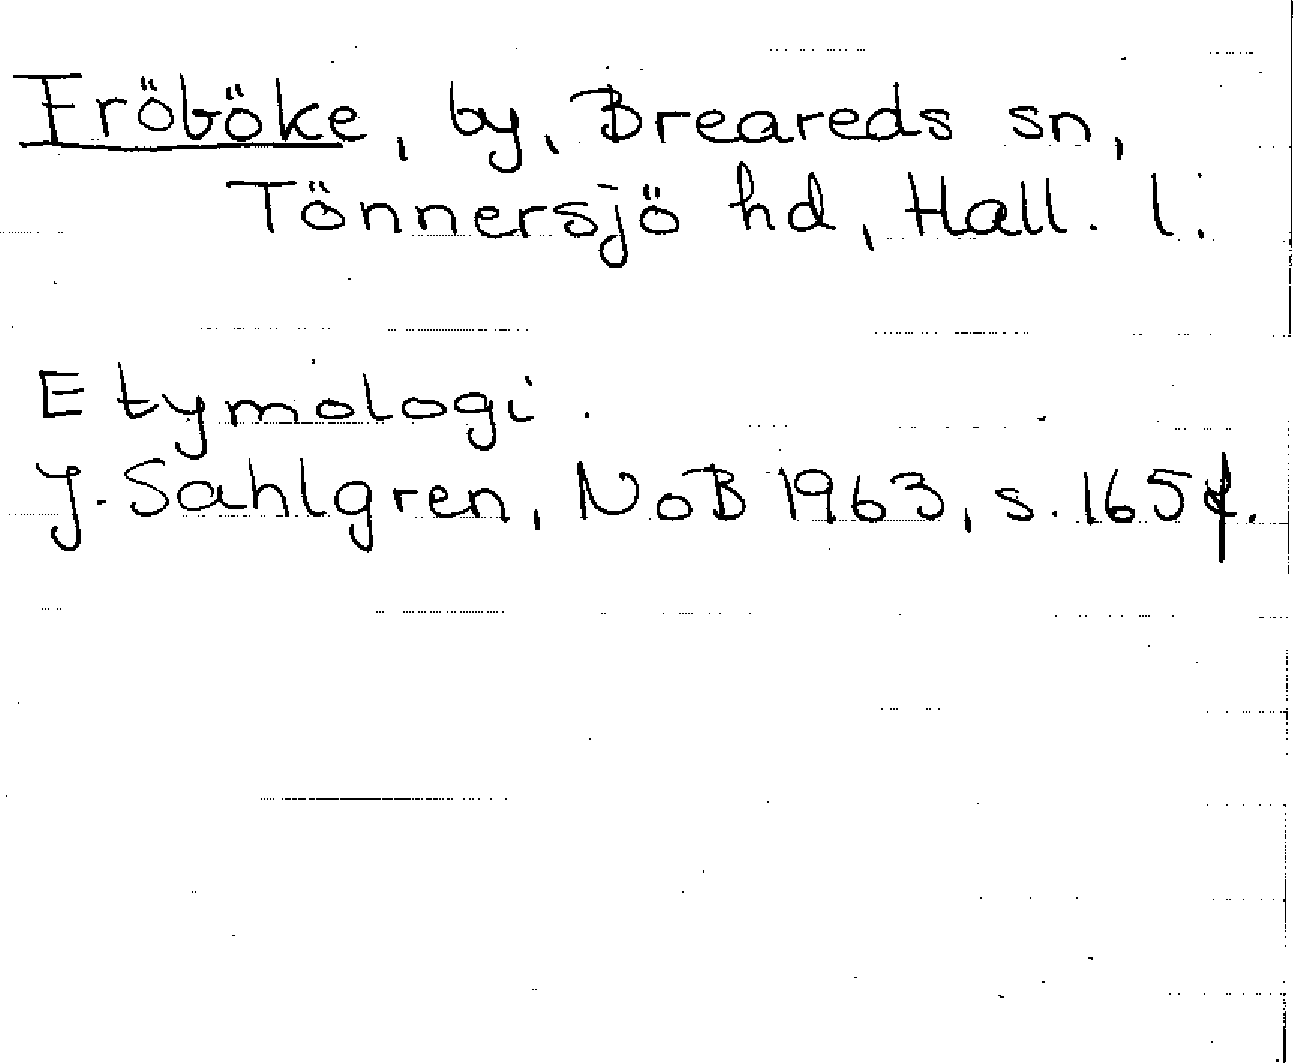 Fröböke, by, Breareds sn,
Tönnersjö hd, Hall. l.
Etymologi.
J. Sahlgren, NoB 1963, s. 165 f.